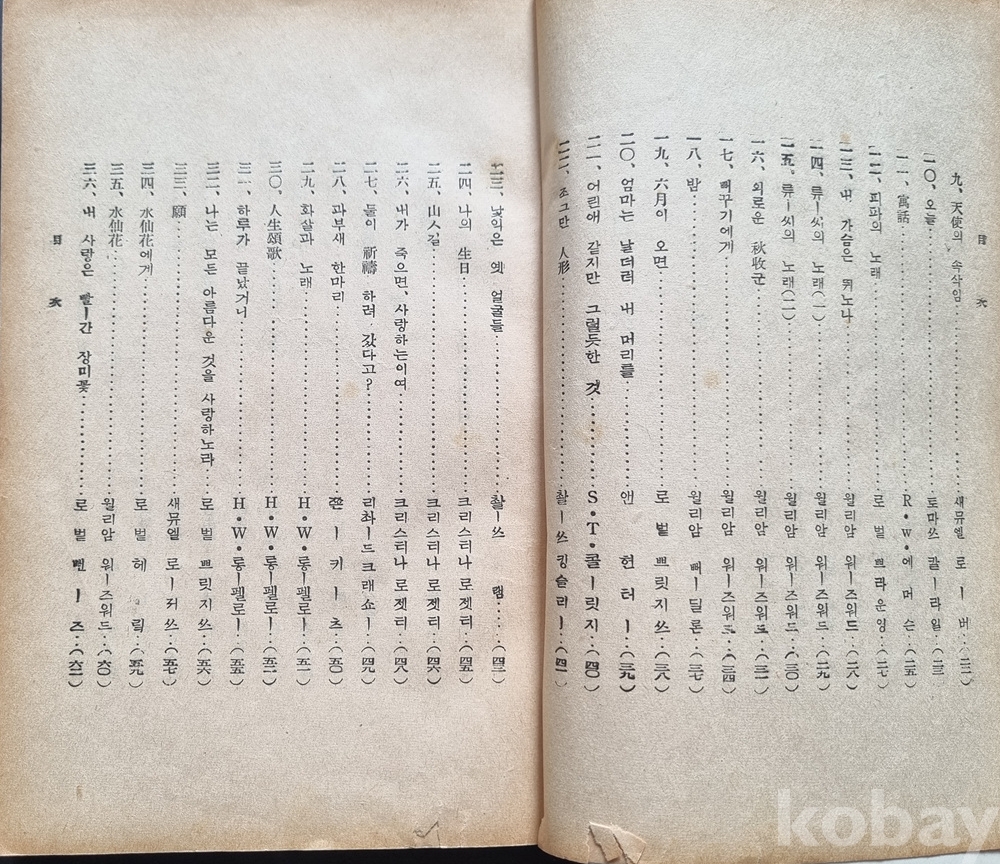 目 次
九、天使의 속삭임……새뮤엘 로ー버…(二二)
一〇、오늘……토마쓰 칼ー라일…(二三)
一一、寓話……R・W・에머슨…(二五)
一二、피파의 노래……로벝 쁘라운잉…(二七)
一三、내 가슴은 뛰노나……윌리암 워ー즈워드…(二八)
一四、류ー씨의 노래(一)……윌리암 워ー즈워드…(二九)
一五、류ー씨의 노래(二)……윌리암 워ー즈워드…(三〇)
一六、외로운 秋收군……윌리암 워ー즈워드…(三二)
一七、뻐꾸기에게……윌리암 워ー즈워드…(三四)
一八、밤……윌리암 뻐ー딜론…(三七)
一九、六月이 오면……로벝 쁘릿지쓰…(三八)
二〇、엄마는 날더러 내 머리를……앤 헌터ー…(三九)
二一、어린애 같지만 그럴듯한 것……S・T・콜ー릿지…(四〇)
二二、조그만 人形……촬ー쓰 킹슬리ー…(四一)
二三、낯익은 옛 얼굴들……촬ー쓰 램…(四三)
二四、나의 生日……크리스티나 로젯티…(四五)
二五、山ㅅ길……크리스티나 로젯티…(四六)
二六、내가 죽으면、사랑하는이여……크리스티나 로젯티…(四八)
二七、둘이 祈禱 하려 갔다고?……리촤ー드 크래쇼ー…(四九)
二八、과부새 한마리……쫀ー 키ー츠…(五〇)
二九、화살과 노래……H・W・롱ー펠로ー…(五一)
三〇、人生頌歌……H・W・롱ー펠로ー…(五二)
三一、하루가 끝났거니……H・W・롱ー펠로ー…(五五)
三二、나는 모든 아름다운 것을 사랑하노라……로벝 쁘릿지쓰…(五六)
三三、願……새뮤엘 로ー저쓰…(五七)
三四、水仙花에게……로벝 헤릭…(五九)
三五、水仙花……윌리암 워ー즈워드…(六〇)
三六、내 사랑은 빨ー간 장미꽃……로벝 뻔ー즈…(六二)
目 次
kobay